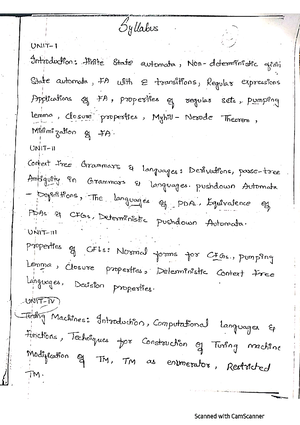 Syllabus
UNIT-I
Introduction: Finite State automata, Non-deterministic finite
State automata, FA with E transitions, Regular expressions
Applications of FA, properties of regular sets, pumping
Lemma, closure properties, Myhill-Nerode Theorem,
Minimization of FA.
UNIT-II
Context Free Grammars & languages: Derivations, parse-tree
Ambiguity in Grammars & languages. pushdown Automata
- Definitions, The languages of PDA, Equivalence of
PDA's & CFGs, Deterministic pushdown Automata.
UNIT-III
properties of CFLs: Normal forms for CFGs, pumping
Lemma, closure properties, Deterministic Context Free
Languages, Decision properties.
UNIT-IV
Turing Machines: Introduction, Computational languages &
functions, Techniques for Construction of Turing machine
Modification of TM, TM as enumerator, Restricted
TM.
Scanned with CamScanner